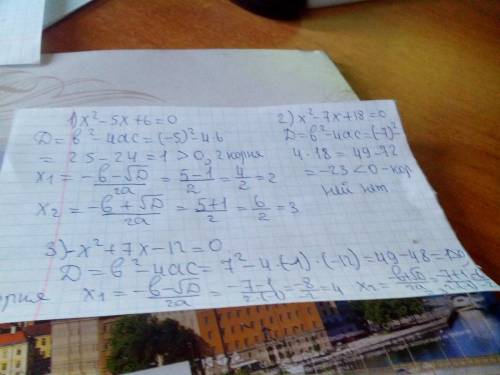 1) x² - 5x + 6 = 0
D = в² - 4ac = (-5)² - 4·6
= 25 - 24 = 1 > 0, 2 корня
x₁ = (-в - √D)/2a = (5-1)/2 = 4/2 = 2
x₂ = (-в + √D)/2a = (5+1)/2 = 6/2 = 3
2) x² - 7x + 18 = 0
D = в² - 4ac = (-7)²
4·18 = 49 - 72
= -23 < 0 - кор
ней нет
3) -x² + 7x - 12 = 0
D = в² - 4ac = 7² - 4·(-1)·(-12) = 49 - 48 =
x₁ = (-в - √D)/2a = = -8/ = 4 x₂ =